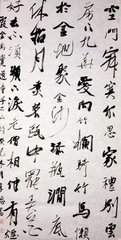 空門寂寞汝思家禮別雲
房下九華愛向竹欄騎竹馬懶
於金地聚金沙添瓶澗底
休招月烹茗甌中罷弄花
好去不須頻下淚老僧相伴有煙
霞